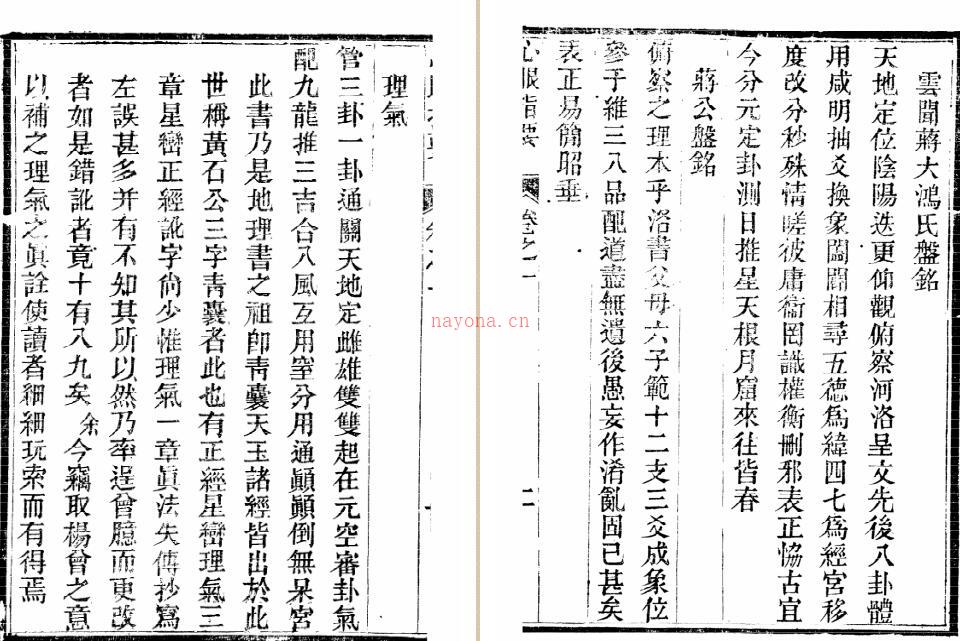 雲間蔣大鴻氏盤銘
天地定位陰陽迭更仰觀俯察河洛呈文先後八卦體
用咸明抽爻換象闔闢相尋五德爲緯四七爲經宮移
度改分秒殊情嗟彼庸術罔識權衡刪邪表正恊古宜
今分元定卦測日推星天根月窟來往皆春
蔣公盤銘
俯察之理本乎洛書父母六子範十二支三爻成象位
參于維三八品配道盡無遺後愚妄作淆亂固已甚矣
表正易簡昭垂
心眼指要
卷之一
二
理氣
管三卦一卦通關天地定雌雄雙雙起在元空審卦氣
配九龍推三吉合八風互用窒分用通顚顚倒無呆宮
此書乃是地理書之祖師靑囊天玉諸經皆出於此
世稱黃石公三字靑囊者此也有正經星巒理氣三
章星巒正經訛字尙少惟理氣一章眞法失傳抄寫
左誤甚多并有不知其所以然乃率逞曾臆而更改
者如是錯訛者竟十有八九矣余今竊取楊曾之意
以補之理氣之眞詮使讀者細細玩索而有得焉
nayona.cn